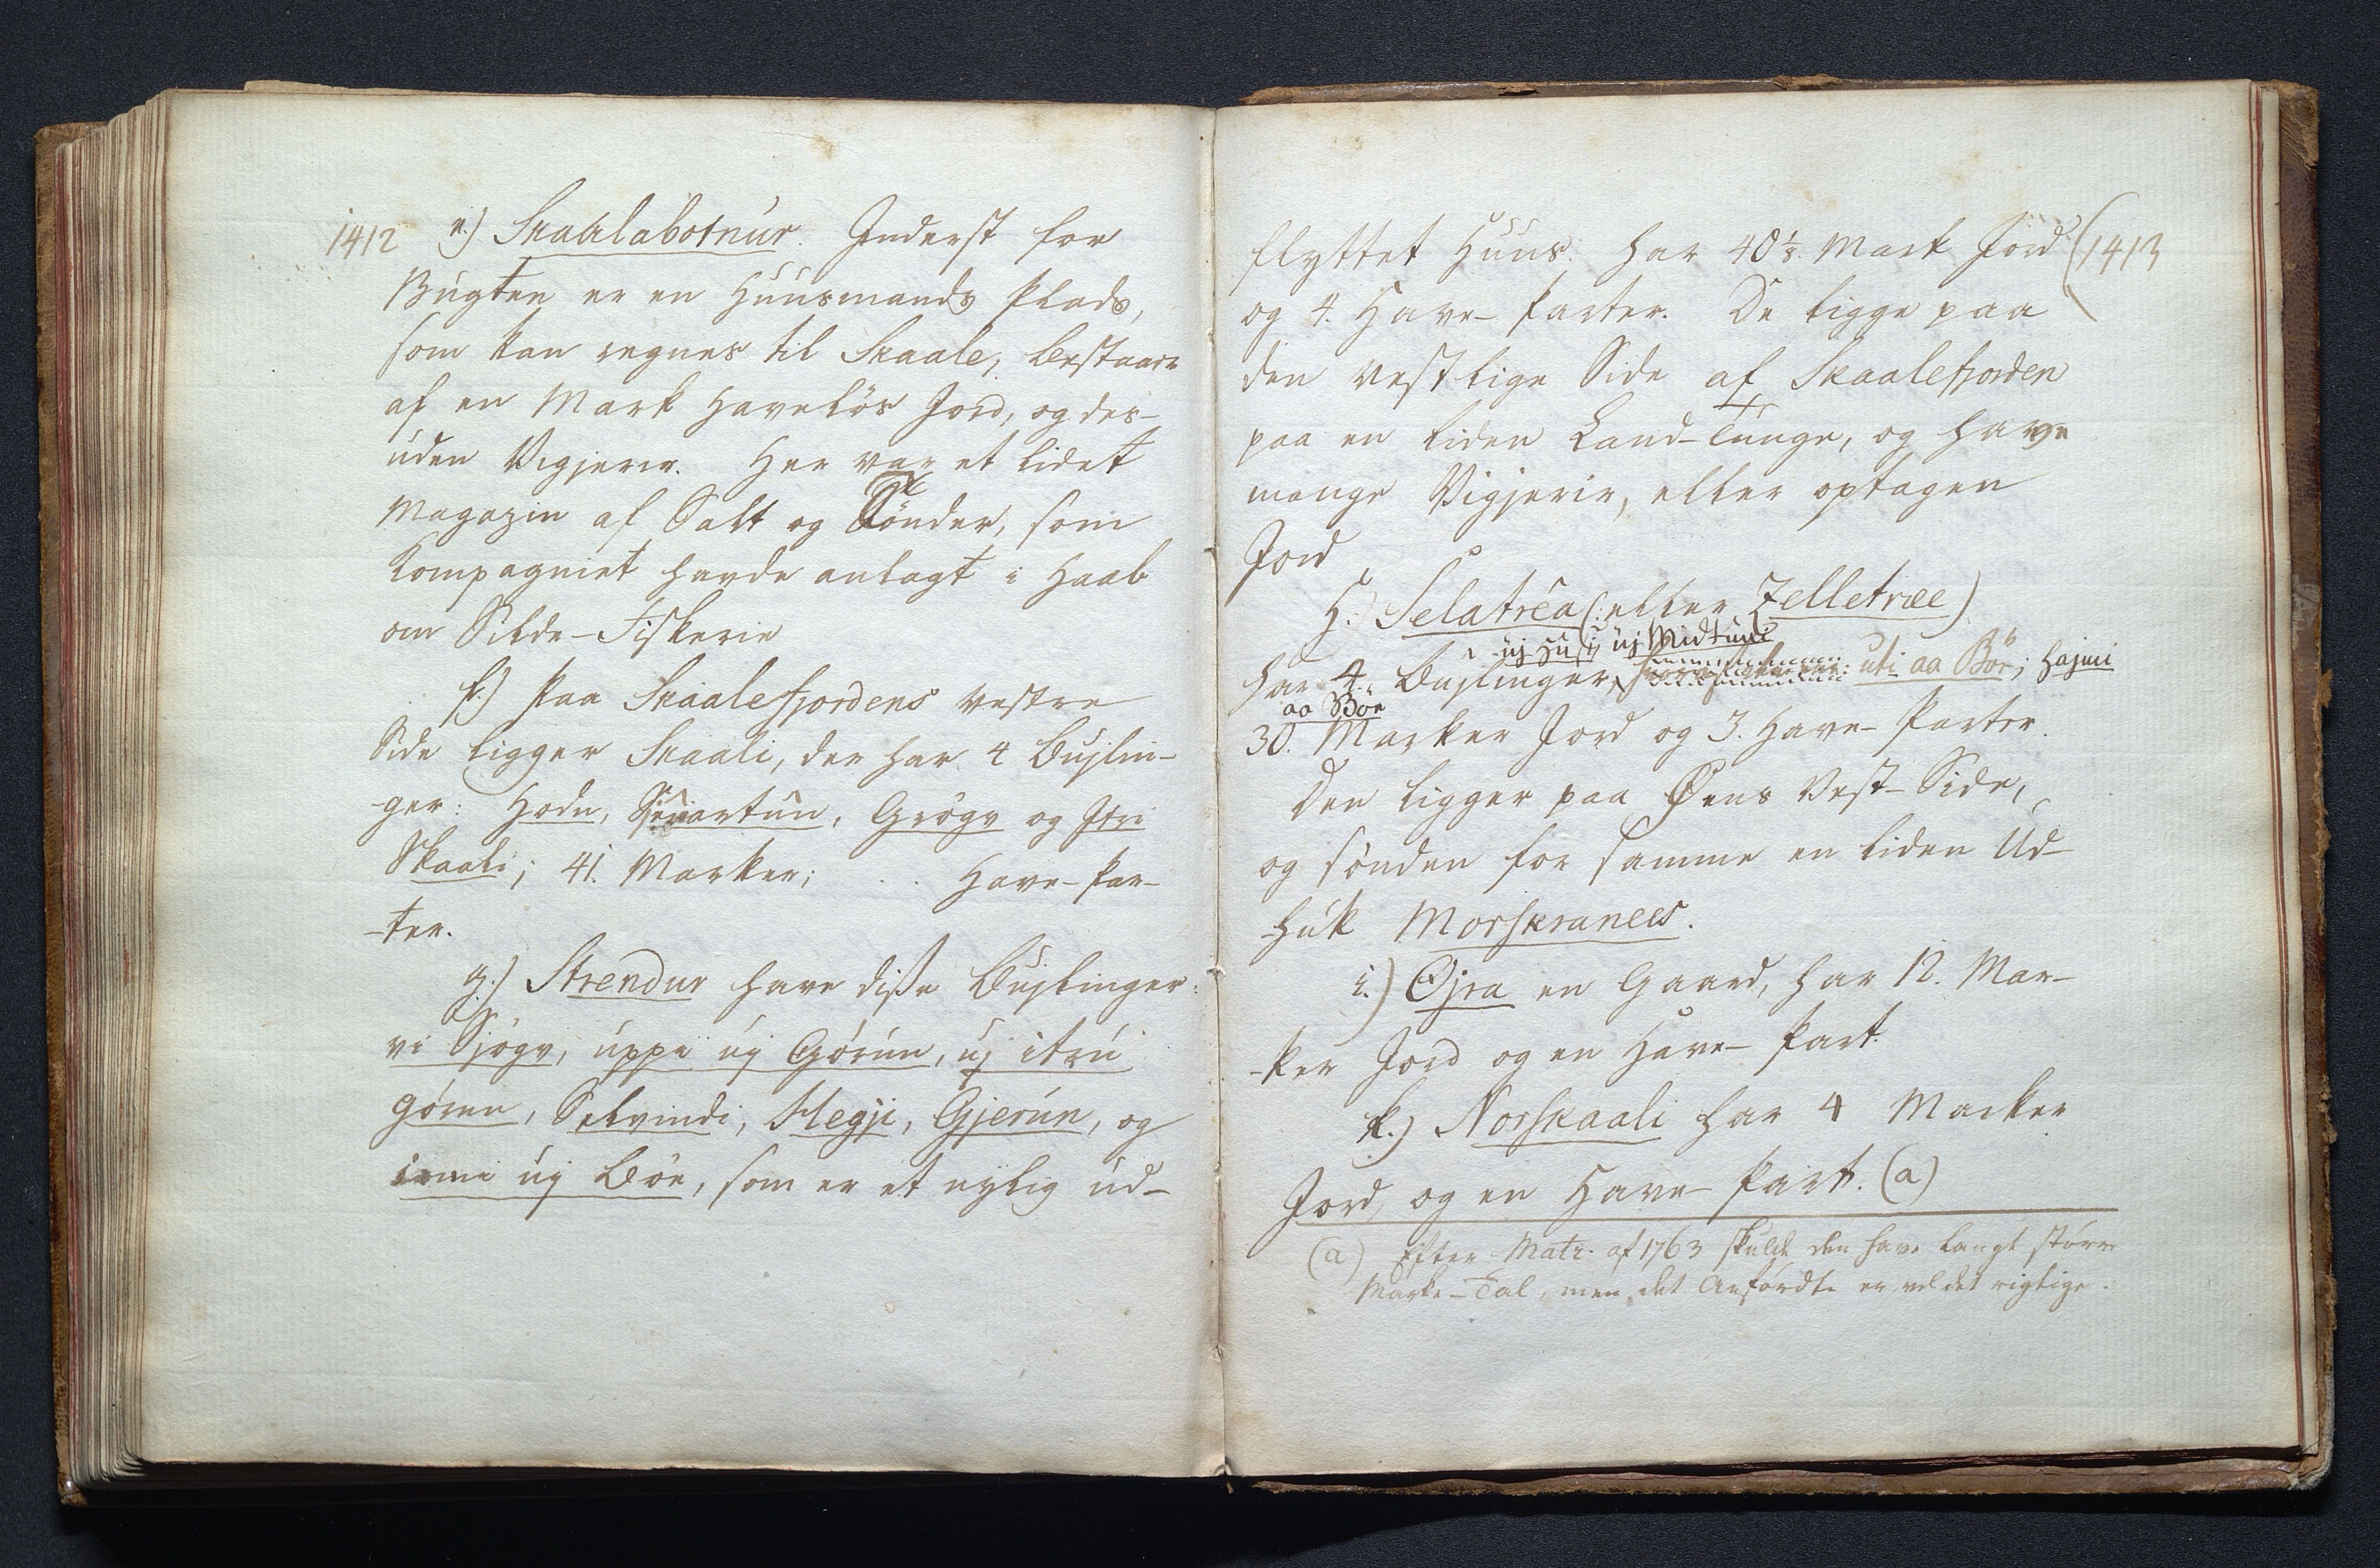 1412 e.) Skaalabotnur. Inderst for
Bugten er en Huusmands Plads,
som kan regnes til Skaale, bestaar
af en Mark Haveløs Jord, og des-
uden Vigjerir. Her var et lidet
Magazin af Salt og Tönder, som
Compagniet havde anlagt i Haab
om Silde-Fiskerie
f.) Paa Skaalefjordens vestre
Side ligger Skaali, der har 4 Bujlin-
ger: Hodn, Sjúartún, Grögv og Itri
Skaali; 41. Marker; .. Have-Par-
-ter.
g.) Strendur have disse Bujlinger:
vi Sjógv, úppi új Gørún, új itrú
gørun, Selvindi, Heygji, Gjerún, og
inni új Bøe, som er et nylig úd-
flyttet Huus: har 48½ Mark Jord (1413
og 4. Have-Parter. De ligge paa
den vestlige Side af Skaalefjorden
paa en liden Land-Tunge, og have
mange Vigjerir, eller optagen
Jord
H.) Selatrëa (: eller Zelletræe)
i új Húsi, új Midtúni
har 4. Bujlinger, uti aa Bøe; Hajmi
aa Bøe
30. Marker Jord og 3. Have-Parter.
Den ligger paa Øens Vest-Side,
og sönden for samme en liden Ud-
-húk Morskranes.
i.) Øjra en Gaard, har 12. Mar-
-ker Jord og en Have-Part.
k.) Norskaali har 4 Marker
Jord, og en Have-Part. (a)
(a) Efter Matr. af 1763 skulde den have langt større
Marke-Tal, men det Anførdte er vel det rigtige.